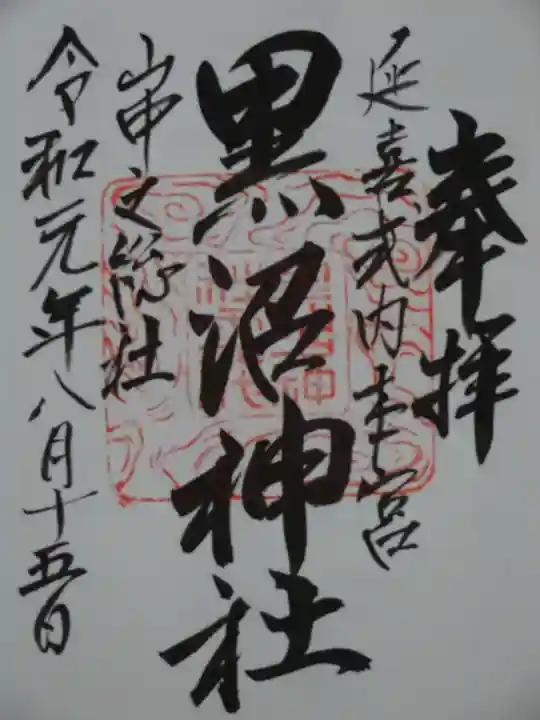 奉拝
延喜式内本宮
黒沼神社
信夫之総社
令和元年八月十五日